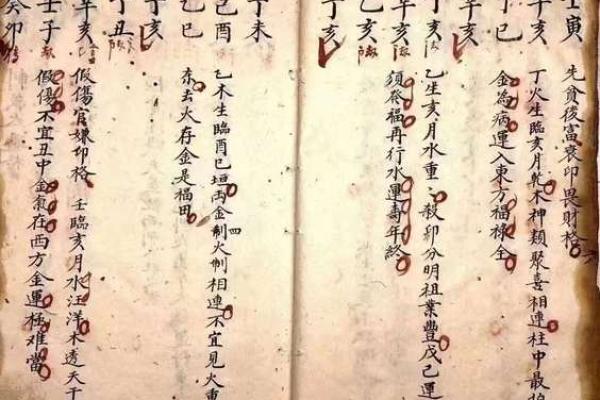 壬寅 先貧後富衰印畏財格
辛亥 丁火生臨亥月乾木神類聚喜相連柱中最
丁巳 金為病運入東方福祿全
亥
丁亥 乙生亥月水重重殺印分明祖業豐戊己運
辛亥 須發福再行水運壽年終
乙亥
丁亥
丁未
己酉 乙木生臨酉巳垣丙四金制火制相連不宜見火重
乙巳 東去火存金是福田
亥
丁丑
辛亥 假傷官嫌印格 壬臨亥月水汪洋木透天干
壬子 假傷不宜丑中金氣在西方金運極难當
癸卯